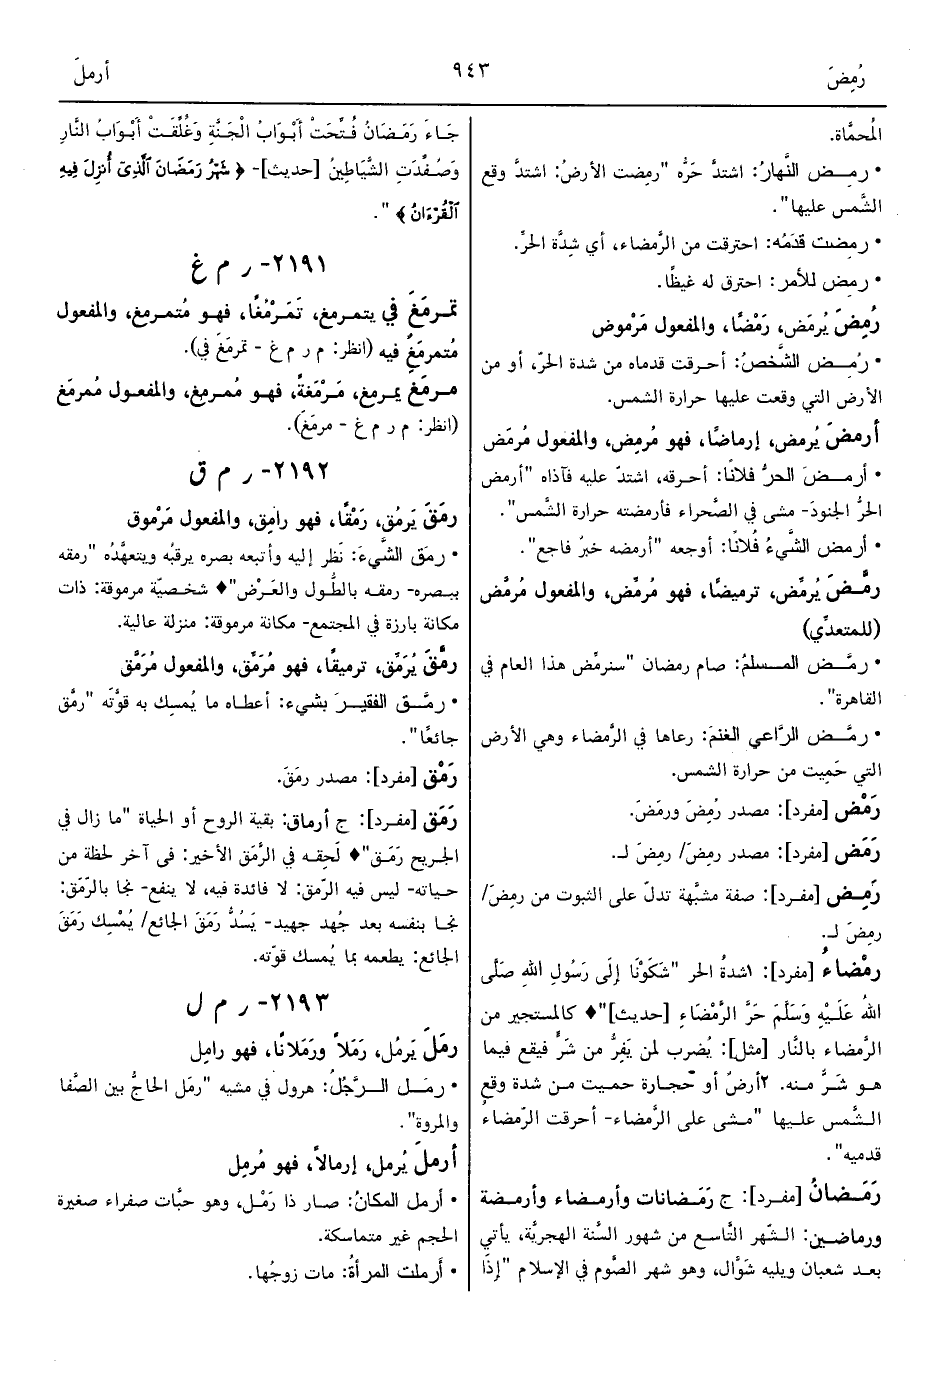 رُمِضَ
٩٤٣
أرملَ
المُحمَّاة.
• رمِض النَّهارُ: اشتدَّ حَرُّه "رمِضت الأرضُ: اشتدَّ وقع
الشَّمس عليها".
• رمِضت قدَمُه: احترقت من الرَّمضاء، أي شِدَّة الحرِّ.
• رمِض للأمر: احترق له غيظًا.
رُمِضَ يُرمَض، رَمْضًا، والمفعول مَرْموض
• رُمِض الشَّخصُ: أحرقت قدماه من شدة الحرّ، أو من
الأرض التي وقعت عليها حرارة الشمس.
أرمضَ يُرمض، إرماضًا، فهو مُرمِض، والمفعول مُرمَض
• أرمضَ الحرُّ فلانًا: أحرقه، اشتدّ عليه فآذاه "أرمض
الحرُّ الجنودَ- مشى في الصَّحراء فأرمضته حرارة الشمس".
• أرمض الشَّيءُ فُلانًا: أوجعه "أرمضه خبرٌ فاجع".
رمَّضَ يُرمِّض، ترميضًا، فهو مُرمِّض، والمفعول مُرمَّض
(للمتعدِّي)
• رمَّض المسلمُ: صام رمضان "سنرمِّض هذا العام في
القاهرة".
• رمَّض الرَّاعي الغنمَ: رعاها في الرَّمضاء وهي الأرض
التي حَمِيت من حرارة الشمس.
رَمْض [مفرد]: مصدر رُمِضَ ورمَضَ.
رَمَض [مفرد]: مصدر رمِضَ/ رمِضَ لـ.
رَمِض [مفرد]: صفة مشبَّهة تدلّ على الثبوت من رمِضَ/
رمِضَ لـ.
رمْضاءُ [مفرد]: ١شدةُ الحر "شَكَوْنَا إِلَى رَسُولِ اللهِ صَلَّى
اللهُ عَلَيْهِ وَسَلَّمَ حَرَّ الرَّمْضَاءِ [حديث]"♦ كالمستجير من
الرَّمضاء بالنَّار [مثل]: يُضرب لمن يَفِرُّ من شَرٍّ فيقع فيما
هو شَرٌّ منه. ٢أرضٌ أو حجارة حميت من شدة وقع
الشَّمس عليها "مشى على الرَّمضاء- أحرقت الرّمضاءُ
قدميه".
رَمَضانُ [مفرد]: ج رَمَضانات وأرمضاء وأرمضة
ورماضين: الشّهر التَّاسع من شهور السَّنة الهجريَّة، يأتي
بعد شعبان ويليه شَوَّال، وهو شهر الصَّوم في الإسلام "إِذَا
جَاءَ رَمَضَانُ فُتِّحَتْ أَبْوَابُ الْجَنَّةِ وَغُلِّقَتْ أَبْوَابُ النَّارِ
وَصُفِّدَتِ الشَّيَاطِينُ [حديث]- ﴿ شَهْرُ رَمَضَانَ الَّذِي أُنزِلَ فِيهِ
الْقُرْءَانُ ﴾ ".
٢١٩١- ر م غ
تمرمَغَ في يتمرمغ، تَمَرْمُغًا، فهو مُتمرمِغ، والمفعول
مُتمرمَغ فيه (انظر: م ر م غ - تمرمَغَ في).
مرمَغَ يمرمغ، مَرْمَغةً، فهو مُمرمِغ، والمفعول مُمرمَغ
(انظر: م ر م غ - مرمَغَ).
٢١٩٢- ر م ق
رمَقَ يَرمُق، رَمْقًا، فهو رامِق، والمفعول مَرْموق
• رمَق الشَّيءَ: نَظر إليه وأتبعه بصره يرقبُه ويتعهَّدُه "رمقه
ببصره- رمقه بالطُّول والعَرْض"♦ شخصيّة مرموقة: ذات
مكانة بارزة في المجتمع- مكانة مرموقة: منزلة عالية.
رمَّقَ يُرَمِّق، ترميقًا، فهو مُرَمِّق، والمفعول مُرَمَّق
• رمَّق الفقيرَ بشيء: أعطاه ما يُمسِك به قوَّتَه "رمَّق
جائعًا".
رَمْق [مفرد]: مصدر رمَقَ.
رَمَق [مفرد]: ج أرماق: بقية الروح أو الحياة "ما زال في
الجريح رَمَق"♦ لَحِقه في الرَّمَق الأخير: في آخر لحظة من
حياته- ليس فيه الرّمق: لا فائدة فيه، لا ينفع- نجا بالرّمَق:
نجا بنفسه بعد جُهد جهيد- يَسُدُّ رَمَقَ الجائع/ يُمْسِك رَمَقَ
الجائع: يطعمه بما يُمسك قوّته.
٢١٩٣- ر م ل
رملَ يَرمُل، رَمَلاً ورَمَلانًا، فهو رامِل
• رمَل الرَّجُلُ: هرول في مشيه "رمَل الحاجُّ بين الصَّفا
والمروة".
أرملَ يُرمل، إرمالاً، فهو مُرمِل
• أرمل المكانُ: صار ذا رَمْل، وهو حبَّات صفراء صغيرة
الحجم غير متماسكة.
• أَرملت المرأةُ: مات زوجُها.